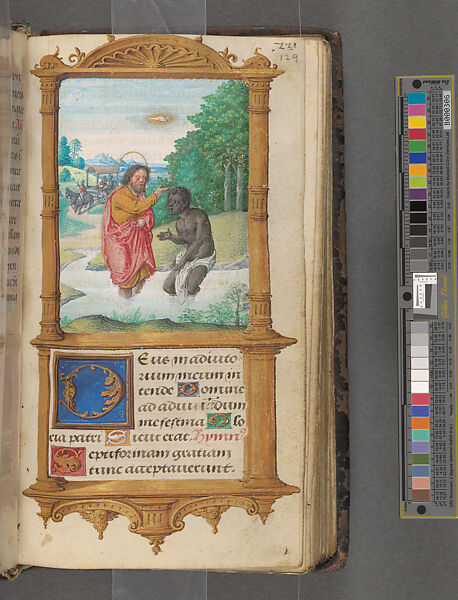 129
Deus in adiuto
rium meum in
tende Domine
ad adiuuandum
me festina Glo
ria patri Sicut erat. Hymnus
Septiformam gratiam
tunc acceptauerunt.
B000306